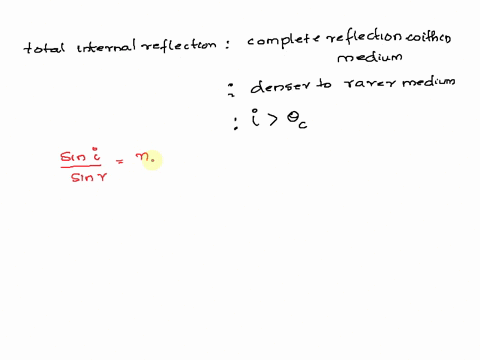 total internal reflection : complete reflection within
medium
: denser to rarer medium
: i > θc
sin i / sin r = n.